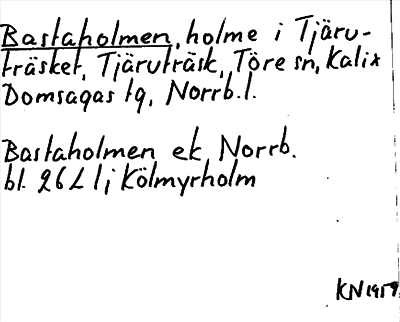 Bastaholmen, holme i Tjäru-
träsket, Tjäruträsk, Töre sn, Kalix
Domsagas tg, Norrb.l.
Bastaholmen ek, Norrb.
bl. 26 L 1; Kölmyrholm
KN 1959